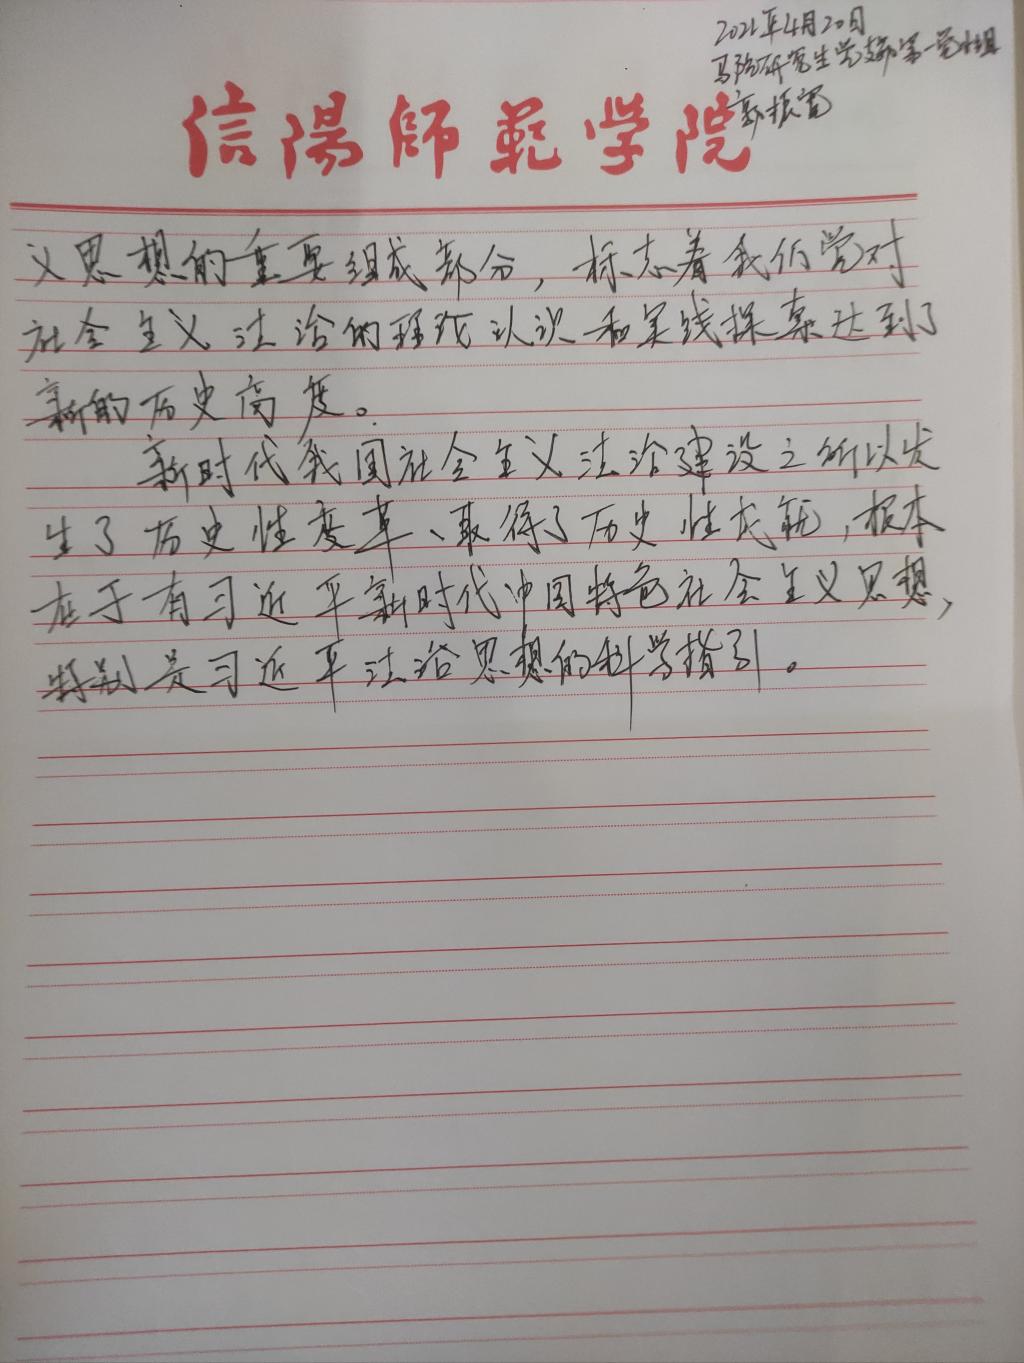 2021年4月20日
马院研究生党支部第一党小组
信陽師範学院
义思想的重要组成部分，标志着我们党对
社会主义法治的理论认识和实践探索达到了
新的历史高度。
新时代我国社会主义法治建设之所以发
生了历史性变革、取得了历史性成就，根本
在于有习近平新时代中国特色社会主义思想，
特别是习近平法治思想的科学指引。